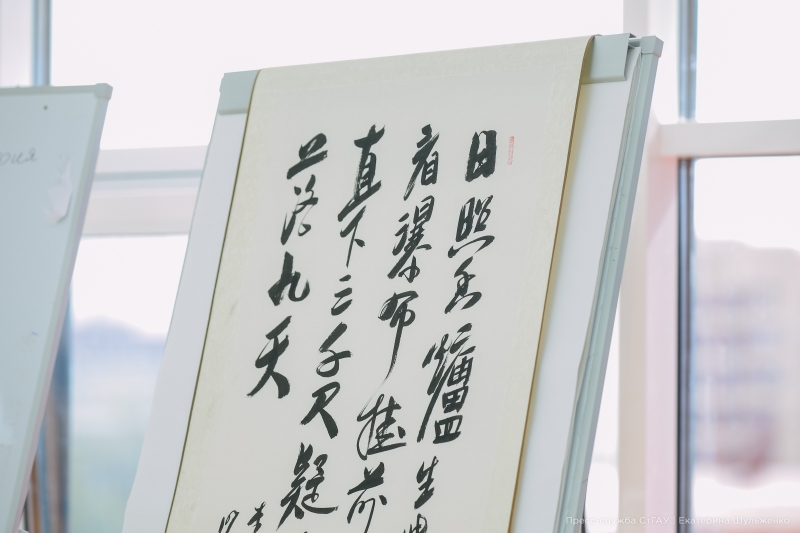 日照香爐生
看瀑布挂前
直下三千尺疑
落九天
рия
Пресс-служба СтГАУ | Екатерина Шульженко